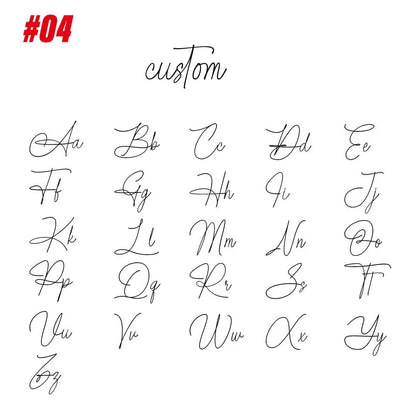 #04
custom
Aa Bb Cc Dd Ee
Ff Gg Hh Ii Jj
Kk Ll Mm Nn Oo
Pp Qq Rr Ss Tt
Uu Vv Ww Xx Yy
Zz